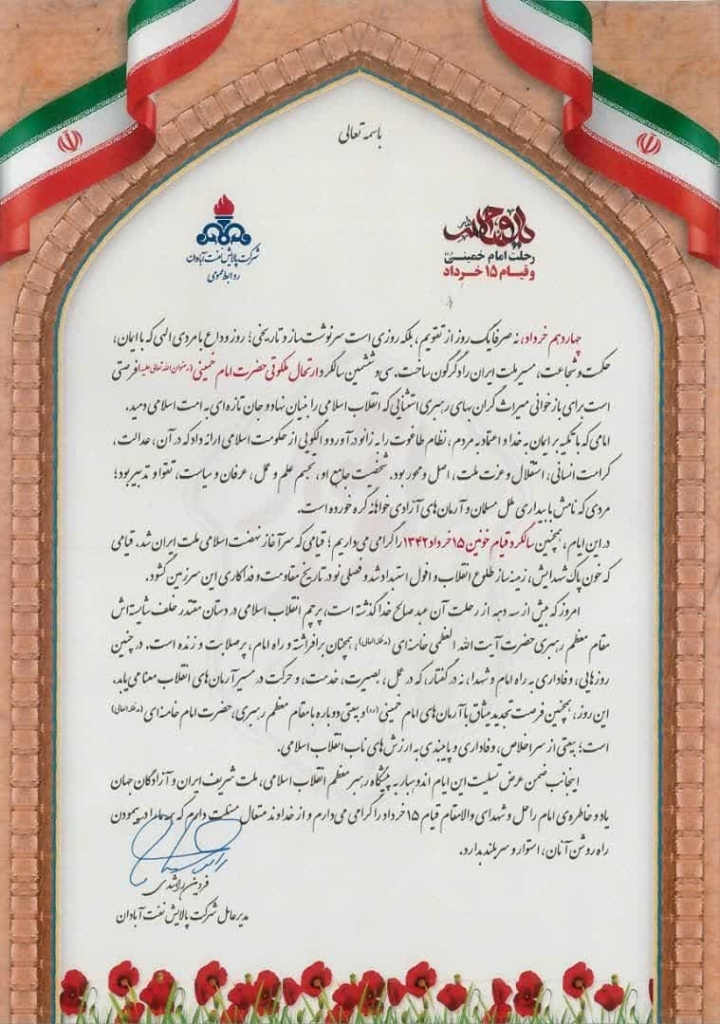 باسمه تعالی
رحلت امام خمینی
و قیام ۱۵ خرداد
شرکت پالایش نفت آبادان
روابط عمومی
چهاردهم خرداد، نه صرفا یک روز از تقویم، بلکه روزی است سرنوشت ساز و تاریخی؛ روز وداع با مردی الهی که با ایمان،
حکمت و شجاعت، مسیر ملت ایران را دگرگون ساخت. سی و ششمین سالگرد ارتحال ملکوتی حضرت امام خمینی (رضوان الله تعالی علیه) فرصتی
است برای بازخوانی میراث گران بهای رهبری استثنایی که انقلاب اسلامی را بنیان نهاد و جان تازه ای به امت اسلامی دمید.
امامی که با تکیه بر ایمان به خدا و اعتماد به مردم، نظام طاغوت را به زانو درآورد و الگویی از حکومت اسلامی ارائه داد که در آن، عدالت،
کرامت انسانی، استقلال و عزت ملت، اصل و محور بود. شخصیت جامع او، تجسم علم و عمل، عرفان و سیاست، تقوا و تدبیر بود؛
مردی که نامش با بیداری ملل مسلمان و آرمان های آزادی خواهانه گره خورده است.
در این ایام، همچنین سالگرد قیام خونین ۱۵ خرداد ۱۳۴۲ را گرامی می داریم؛ قیامی که سرآغاز نهضت اسلامی ملت ایران شد. قیامی
که خون پاک شهدایش، زمینه ساز طلوع انقلاب و افول استبداد شد و فصلی نو در تاریخ مقاومت و فداکاری این سرزمین گشود.
امروز که بیش از سه دهه از رحلت آن عبد صالح خدا گذشته است، پرچم انقلاب اسلامی در دستان مقتدر خلف شایسته اش
مقام معظم رهبری حضرت آیت الله العظمی خامنه ای (مدظله العالی)، همچنان برافراشته و راه امام، پرصلابت و زنده است. در چنین
روزهایی، وفاداری به راه امام و شهدا، نه در گفتار، که در عمل، بصیرت، خدمت، و حرکت در مسیر آرمان های انقلاب معنا می یابد.
این روز، همچنین فرصت تجدید میثاق با آرمان های امام خمینی (ره) و بیعتی دوباره با مقام معظم رهبری، حضرت امام خامنه ای (مدظله العالی)
است؛ بیعتی از سر اخلاص، وفاداری و پایبندی به ارزش های ناب انقلاب اسلامی.
اینجانب ضمن عرض تسلیت این ایام اندوهبار به پیشگاه رهبر معظم انقلاب اسلامی، ملت شریف ایران و آزادگان جهان
یاد و خاطره ی امام راحل و شهدای والامقام قیام ۱۵ خرداد را گرامی می دارم و از خداوند متعال مسئلت دارم که همه ما را در پیمودن
راه روشن آنان، استوار و سربلند بدارد.
مدیرعامل شرکت پالایش نفت آبادان